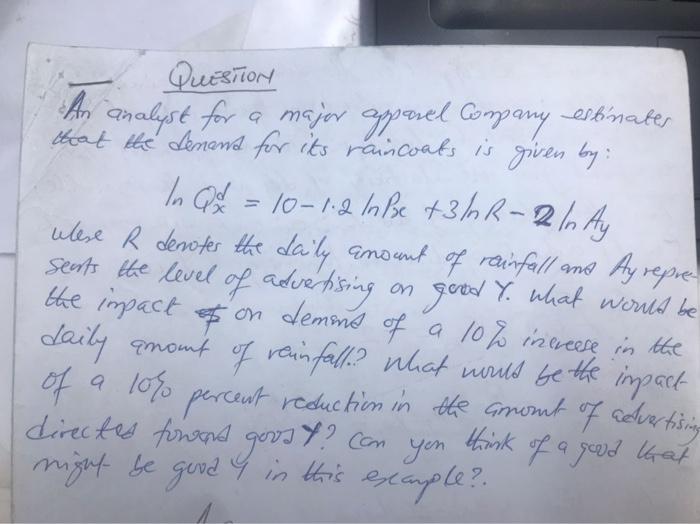 QUESTION
An analyst for a major apparel Company estimates
that the demand for its raincoats is given by:
ln Qxd = 10 - 1.2 ln Px + 3 ln R - 2 ln Ay
where R denotes the daily amount of rainfall and Ay repre-
sents the level of advertising on good Y. What would be
the impact on demand of a 10% increase in the
daily amount of rainfall? What would be the impact
of a 10% percent reduction in the amount of advertising
directed toward good Y? Can you think of a good that
might be good Y in this example?.